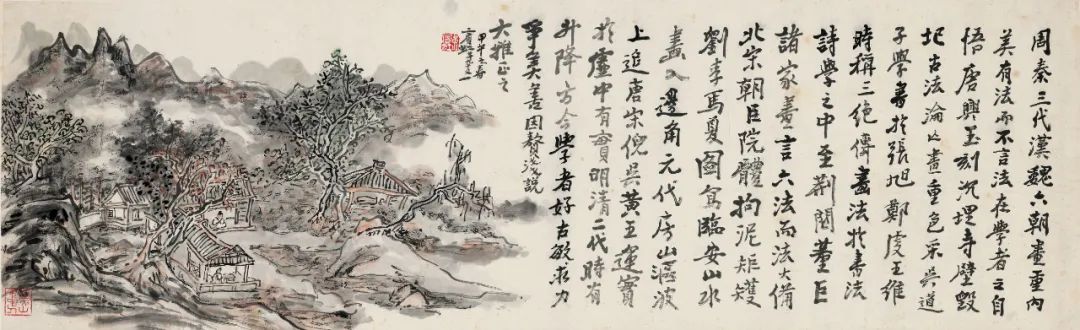 周秦三代漢魏六朝畫重內
美有法而不言法在學者之自
悟唐興玉刻沉埋寺壁毀
圮古法淪亡畫重色采吳道
子學書於張旭鄭虔王維
時稱三絕傳畫法於書法
詩學之中至荊關董巨
諸家畫言六法而法大備
北宋朝臣院體拘泥矩矱
劉李馬夏圖寫臨安山水
畫入邊角元代房山漚波
上追唐宋倪吳黃王運實
於虛中有實明清二代時有
升降方今學者好古敏求力
爭美善因贅淺說
大雅正之
甲午之春
賓虹